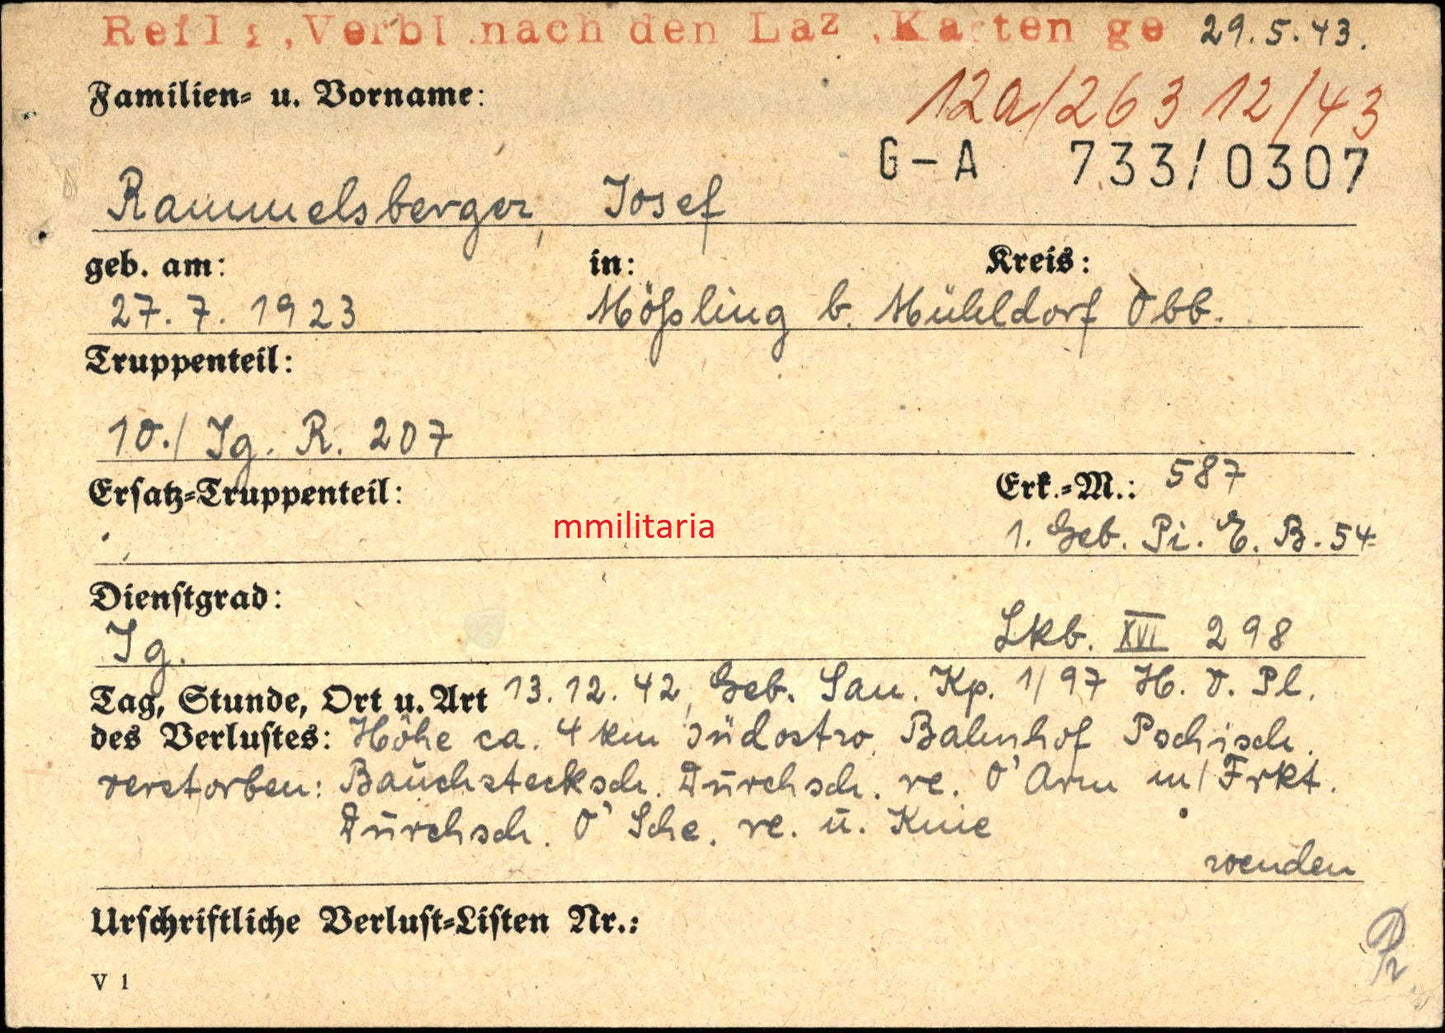 nach den Laz. Karten ge 29.5.43.
Familien= u. Vorname:
12a/263 12/43
G-A 733/0307
Rammelsberger, Josef
geb. am: in: Kreis:
27. 7. 1923 Mößling b. Mühldorf Obb.
Truppenteil:
10./ Jg. R. 207
Ersatz=Truppenteil: Erk.=M.: 587
mmilitaria
1. Geb. Pi. E. B. 54
Dienstgrad:
Jg. Lkb. XVI 298
Tag, Stunde, Ort u. Art 13.12.42, Geb. San. Kp. 1/97 H. V. Pl.
des Verlustes: Höhe ca. 4 km südostw. Bahnhof Pschisch.
verstorben: Bauchstecksch. Durchsch. re. O'Arm m/Frkt.
Durchsch. O'Sche. re. u. Knie
wenden
Urschriftliche Verlust=Listen Nr.:
V 1